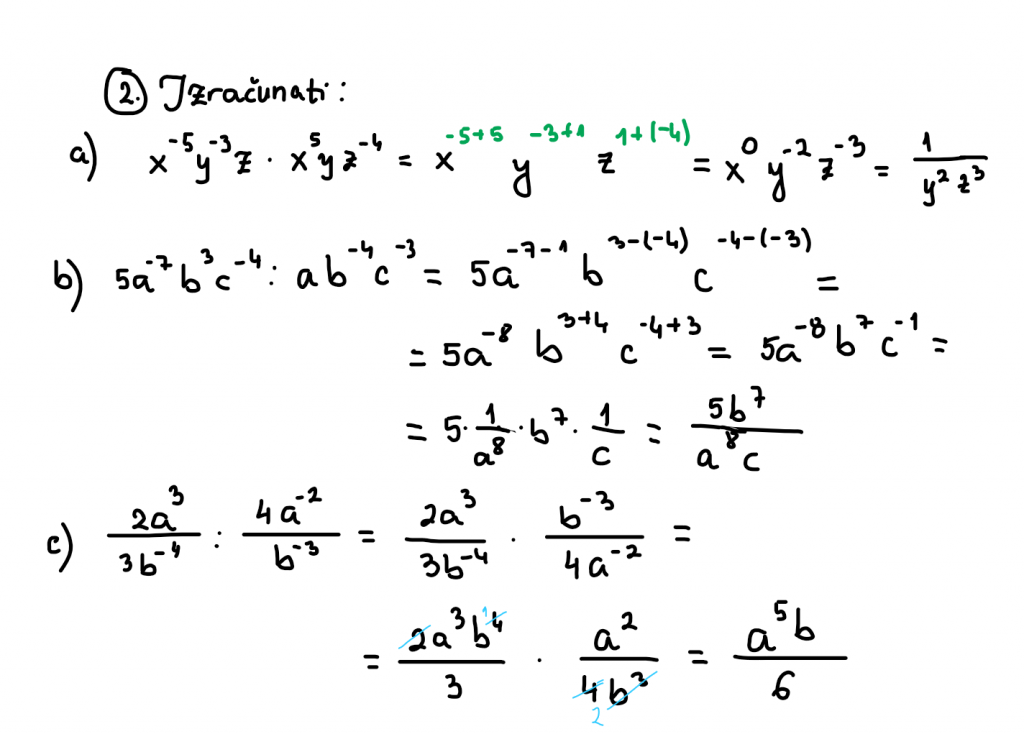 2. Izračunati:
a) x⁻⁵y⁻³z · x⁵yz⁻⁴ = x⁻⁵⁺⁵ y⁻³⁺¹ z¹⁺⁽⁻⁴⁾ = x⁰y⁻²z⁻³ = 1/(y²z³)
b) 5a⁻⁷b³c⁻⁴ : ab⁻⁴c⁻³ = 5a⁻⁷⁻¹ b³⁻⁽⁻⁴⁾ c⁻⁴⁻⁽⁻³⁾ =
= 5a⁻⁸ b³⁺⁴ c⁻⁴⁺³ = 5a⁻⁸b⁷c⁻¹ =
= 5 · 1/a⁸ · b⁷ · 1/c = 5b⁷/(a⁸c)
c) 2a³/(3b⁻⁴) : 4a⁻²/b⁻³ = 2a³/(3b⁻⁴) · b⁻³/(4a⁻²) =
= 2a³b⁴ 1/3 · a²/(4b³) 2 = a⁵b/6